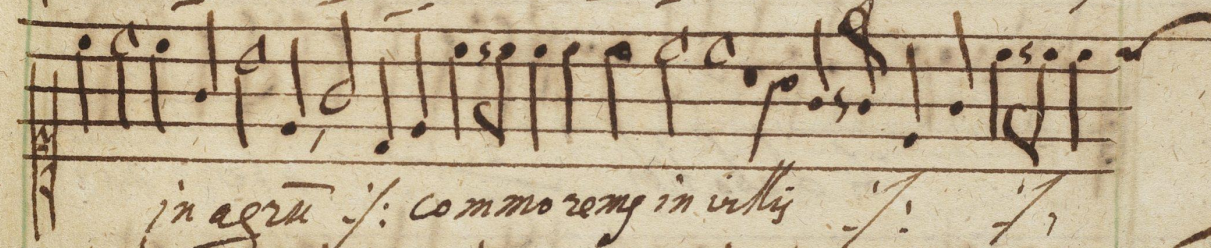 in agrū ·/: commoremꝯ in villis ·/: ·/: